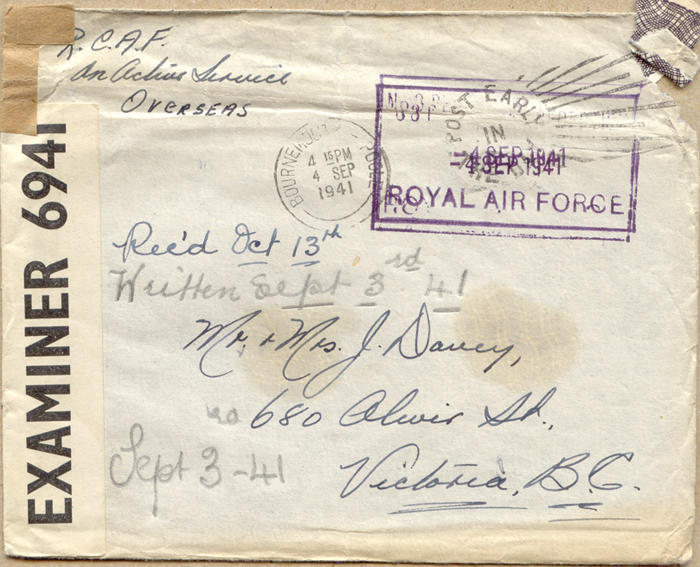 R.C.A.F.
On Active Service
OVERSEAS
EXAMINER 6941
BOURNEMOUTH POOLE
4 15 PM
4 SEP
1941
POST EARLY
IN
THE
4 SEP 1941
ROYAL AIR FORCE
Rec'd Oct 13th
Written Sept 3rd 41
Mr. & Mrs. J. Davey,
680 St.,
Sept 3-41
Victoria, B.C.